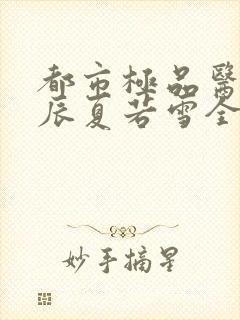 都市極品醫
辰夏若雪全
妙手摘星